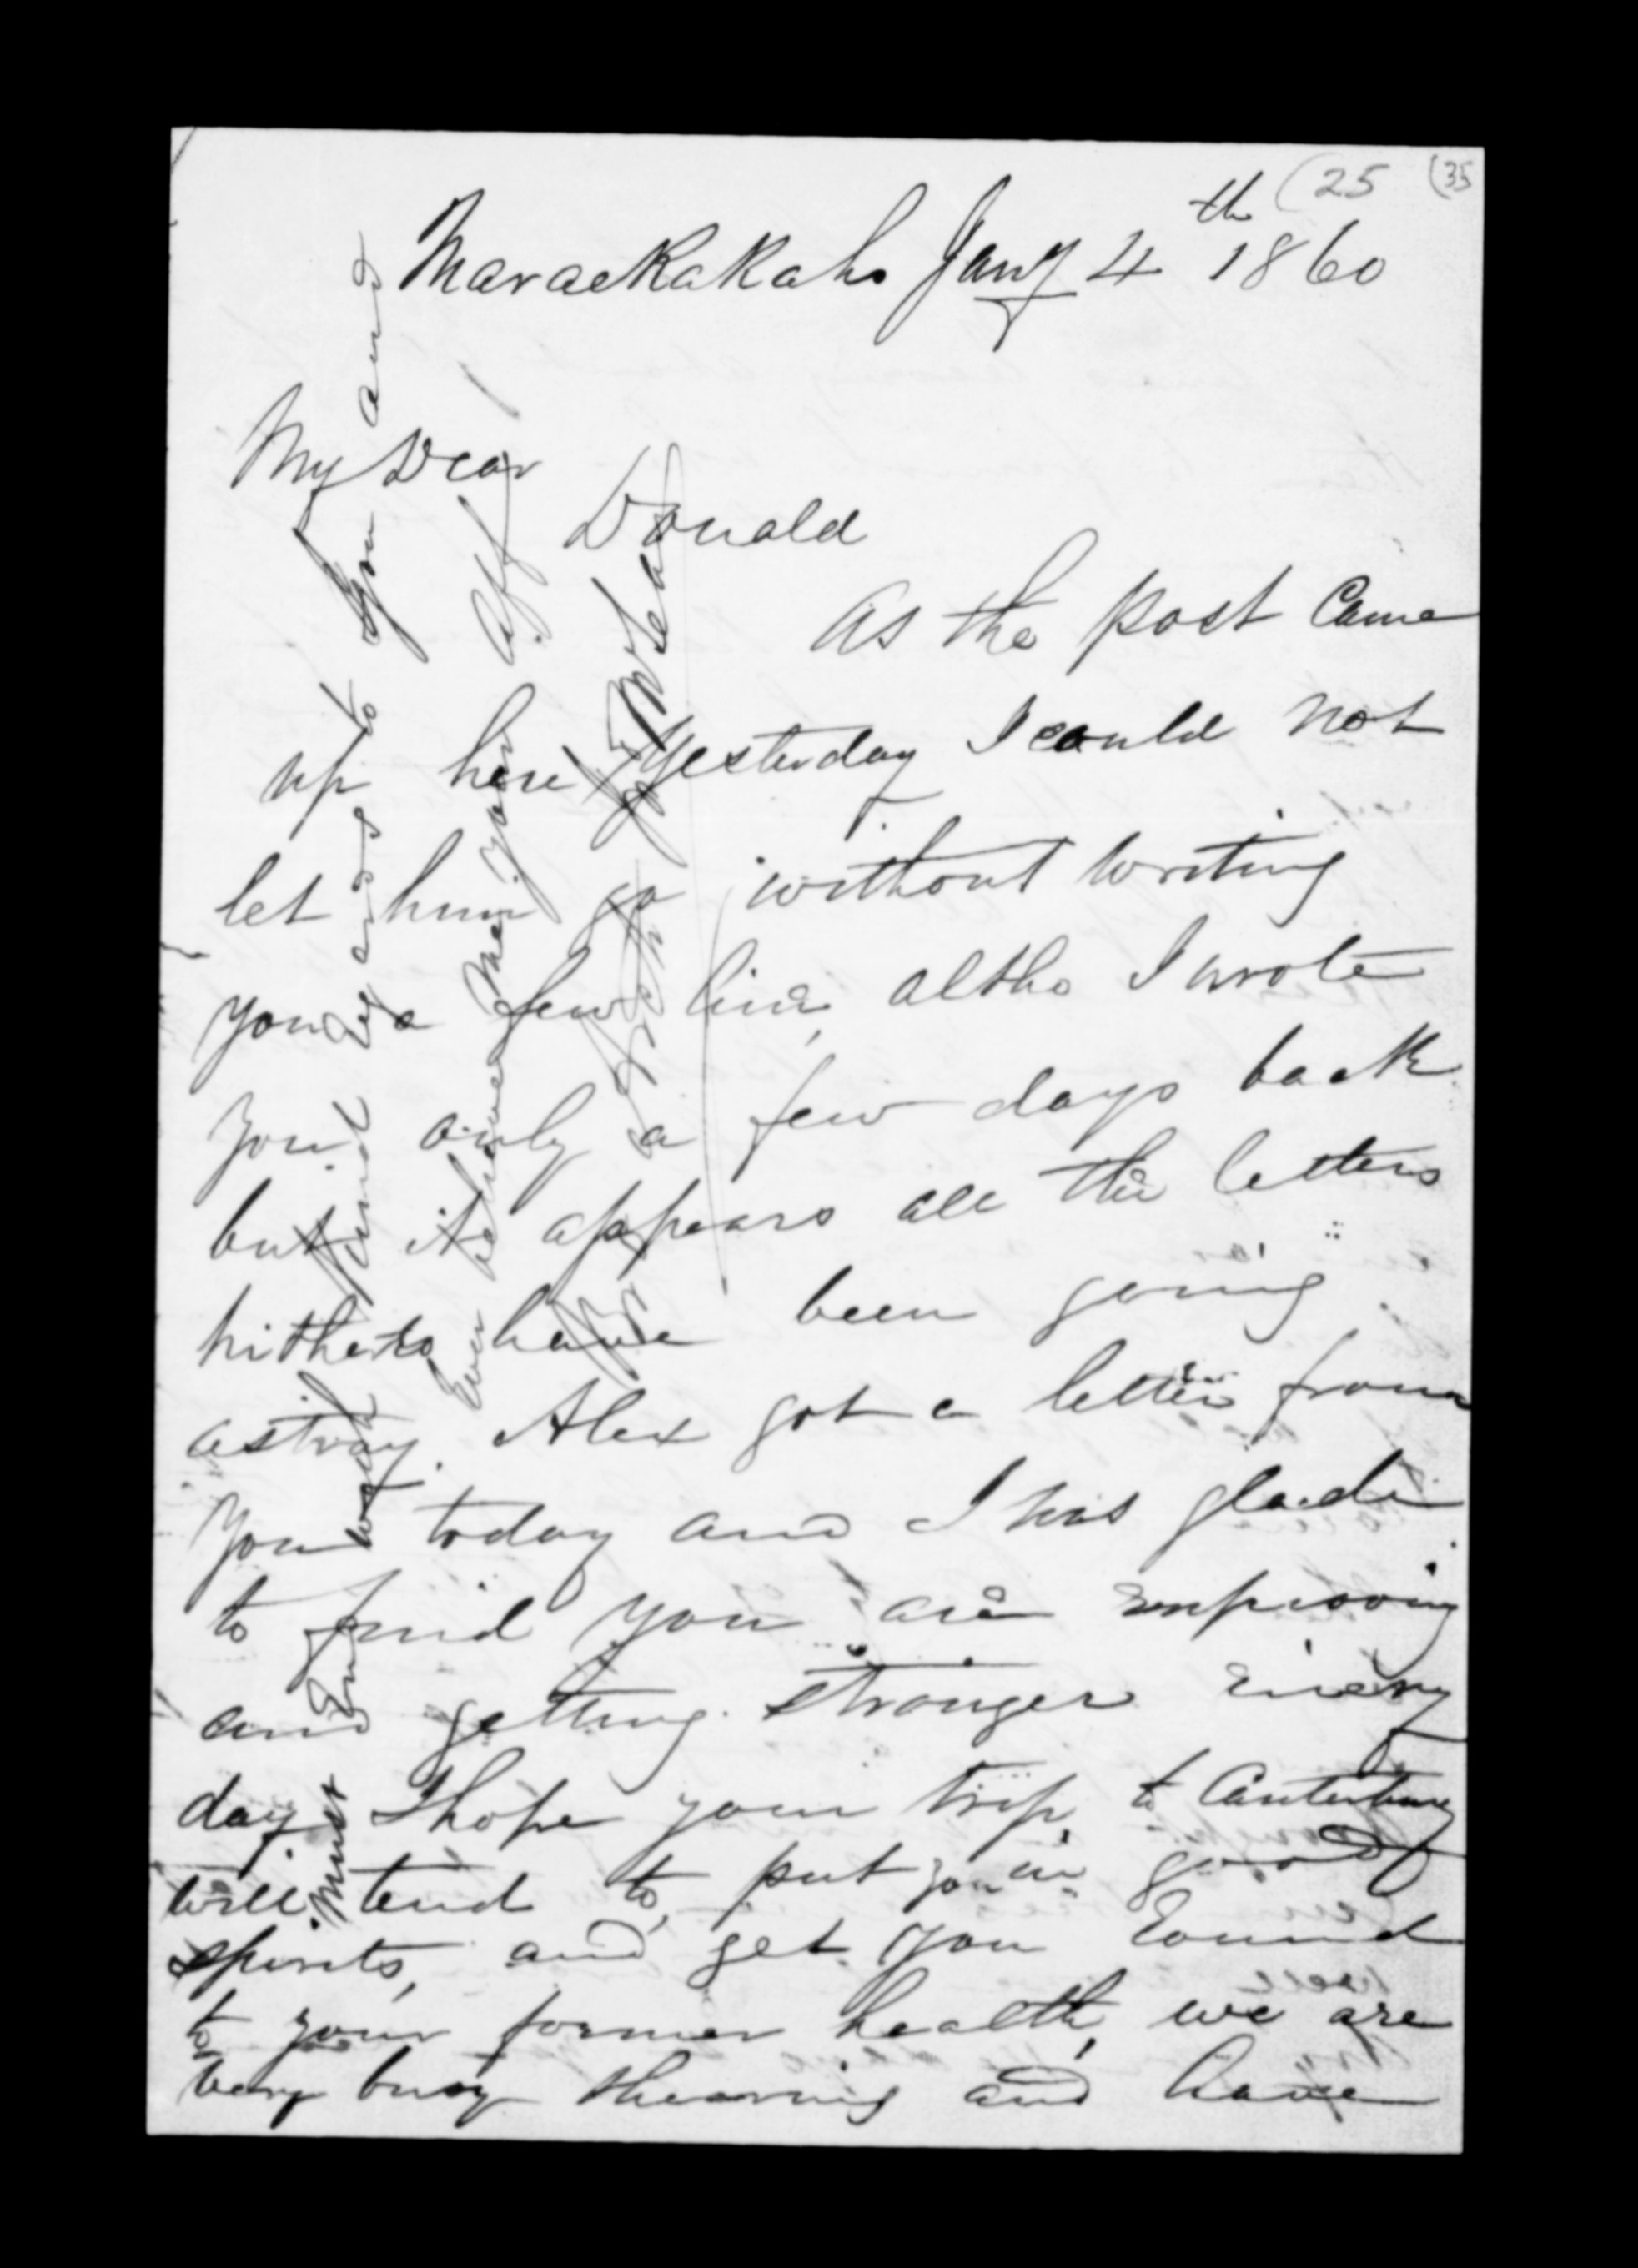 (25 (35
Maraekakaho Jany 4th 1860
My Dear
Donald
As the post Came
up here yesterday I could not
let him go without writing
you a few line, altho I wrote
you only a few days back
but it appears all the letters
hitherto have been going
astray. Alex got a letter from
you today and I was glade
to find you are improving
and getting stronger every
day I hope your trip, to Canterbury
will tend to, put you in good
spirits, and get you Round
to your former health, we are
very busy shearing and have
must End with kind regards to you and
Ever believe me your aff
Brother
McLean